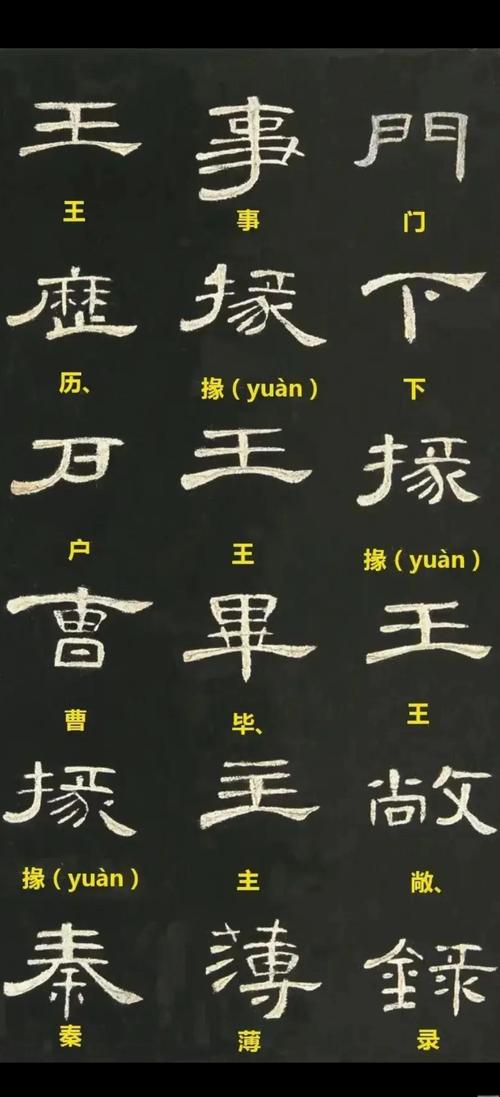 門下掾王敞錄
门下掾（yuàn）王敞、录
事掾王畢主薄
事掾（yuàn）王毕、主薄
王歷戶曹掾秦
王历、户曹掾（yuàn）秦